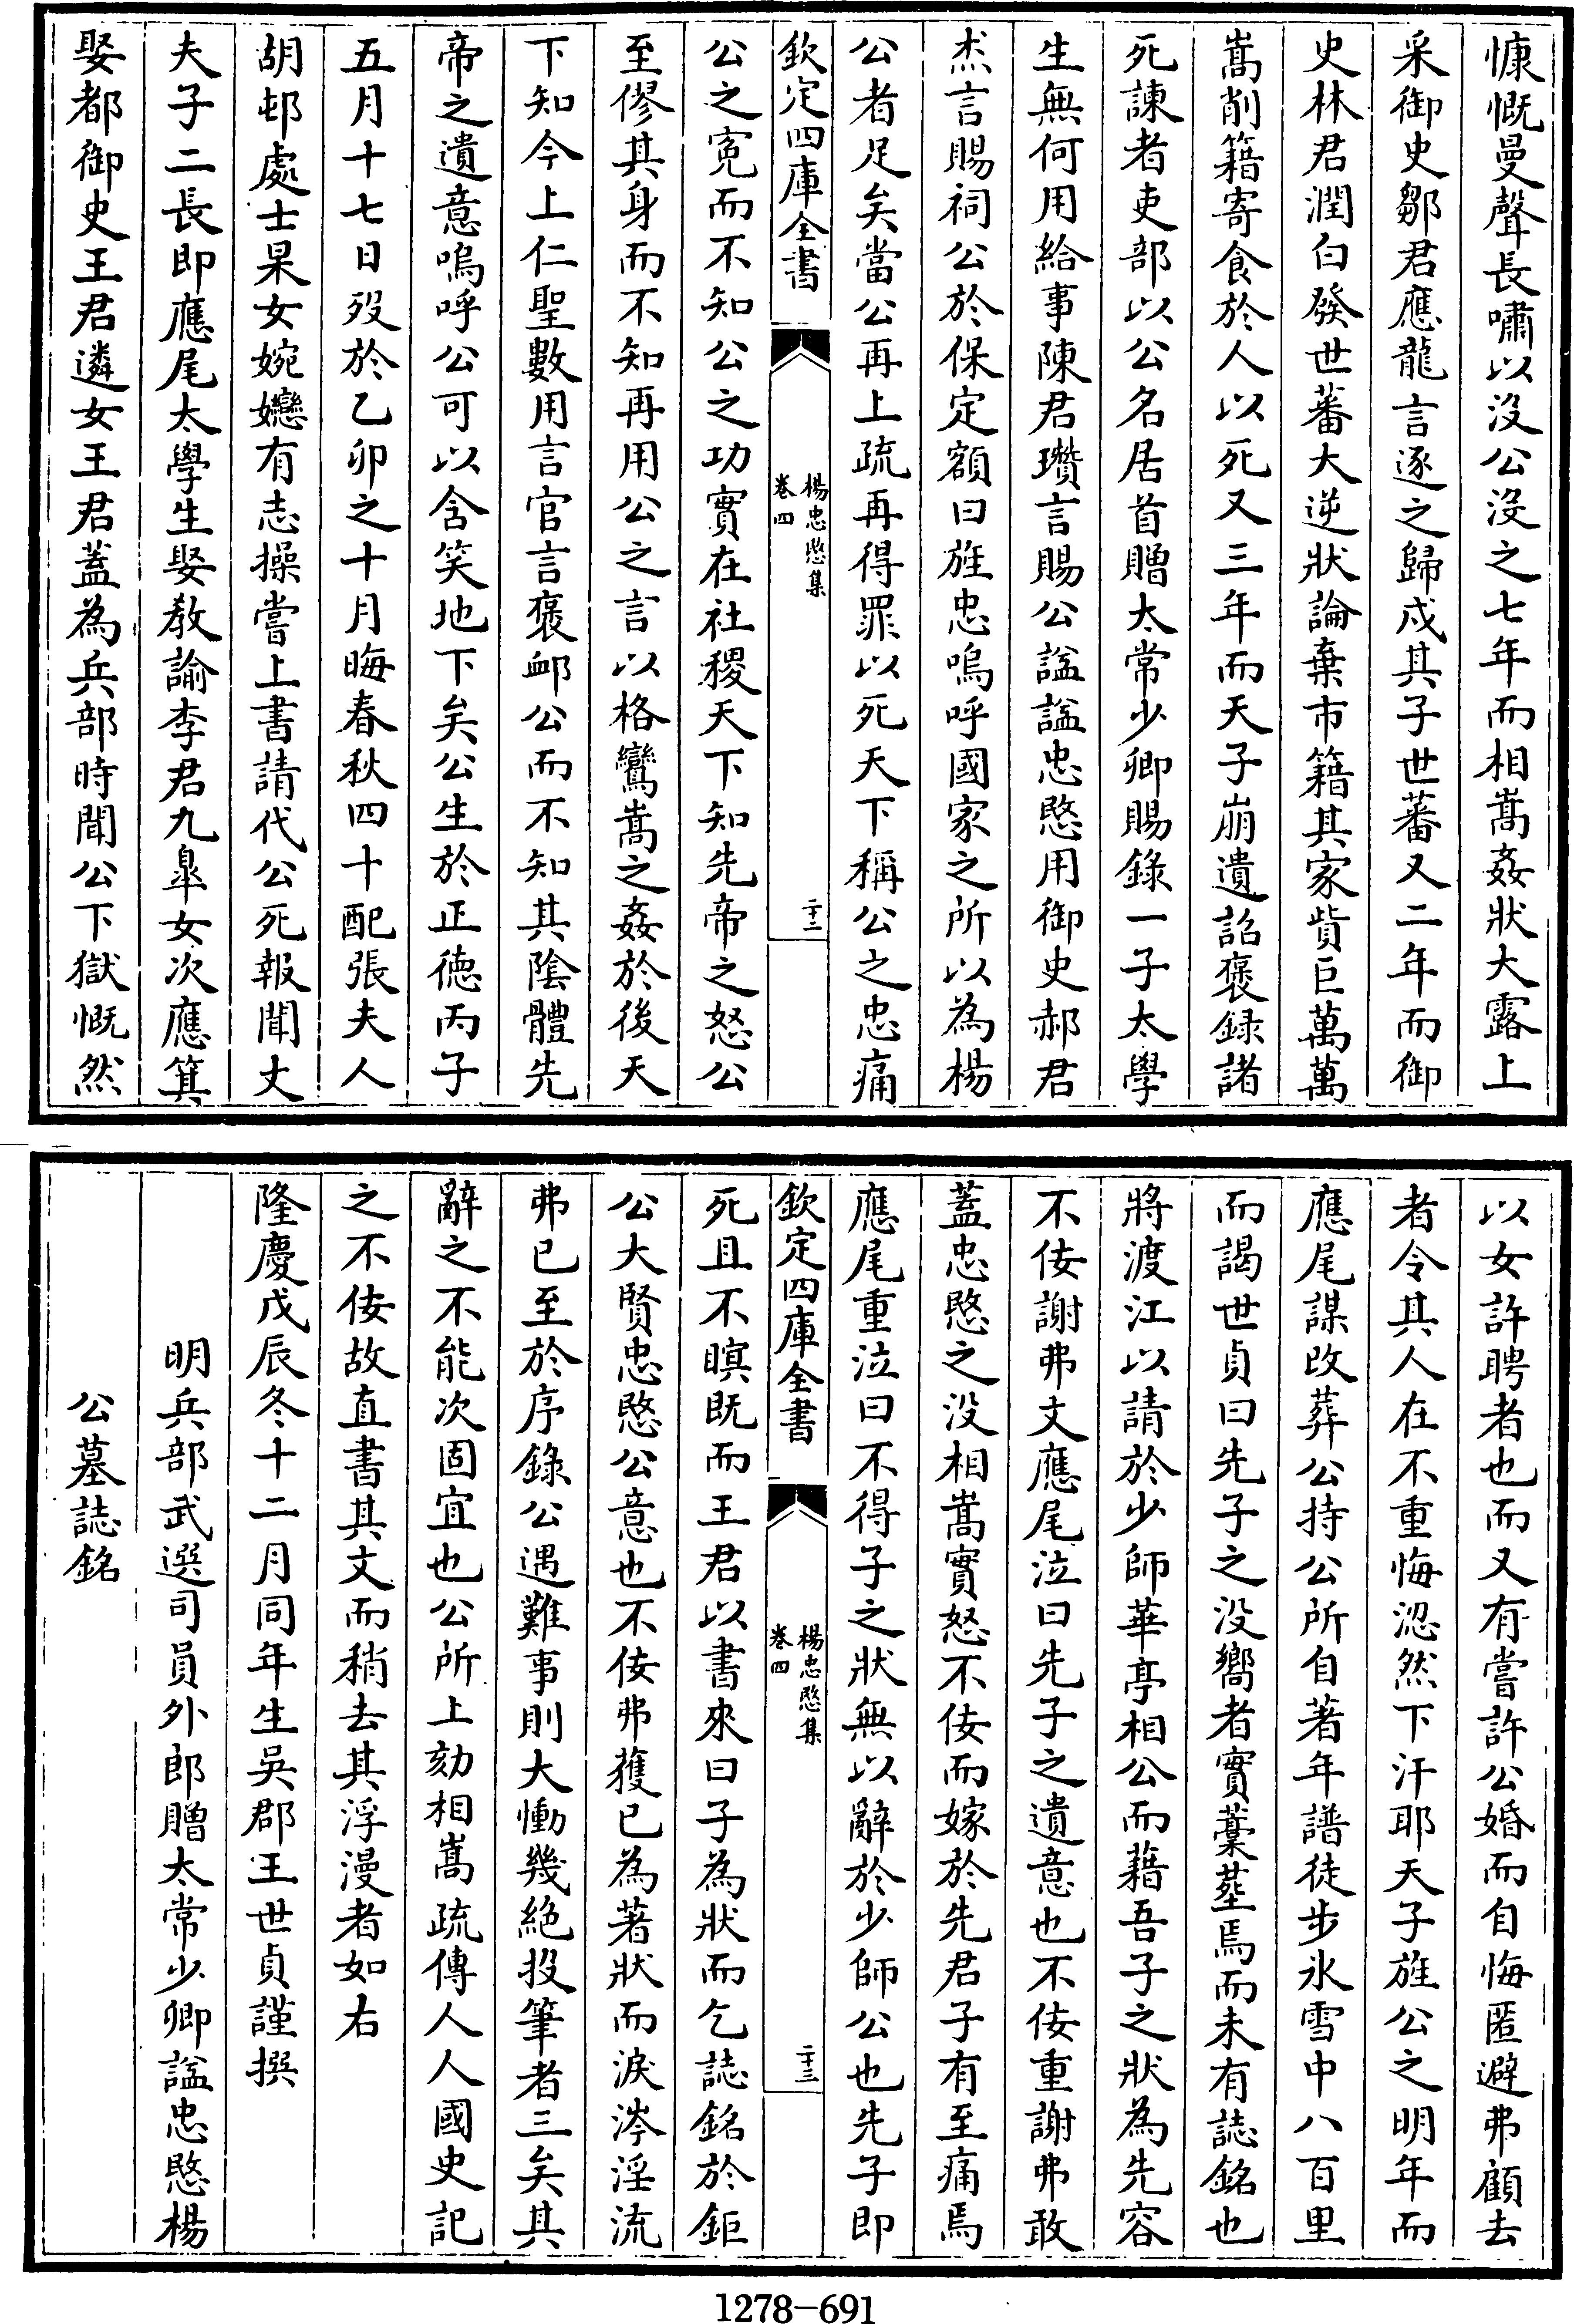 慷慨曼聲長嘯以沒公沒之七年而相嵩姦狀大露上
采御史鄒君應龍言逐之歸戍其子世蕃又二年而御
史林君潤白發世蕃大逆狀論棄市籍其家貲巨萬萬
嵩削籍寄食於人以死又三年而天子崩遺詔褒録諸
死諫者吏部以公名居首贈太常少卿賜錄一子太學
生無何用給事陳君瓚言賜公諡諡忠愍用御史郝君
杰言賜祠公於保定額曰旌忠嗚呼國家之所以為楊
公者足矣當公再上疏再得罪以死天下稱公之忠痛
欽定四庫全書
楊忠愍集
卷四
二十二
公之寃而不知公之功實在社稷天下知先帝之怒公
至僇其身而不知再用公之言以格鸞嵩之姦於後天
下知今上仁聖數用言官言褒䘏公而不知其陰體先
帝之遺意嗚呼公可以含笑地下矣公生於正德丙子
五月十七日歿於乙卯之十月晦春秋四十配張夫人
胡邨處士杲女婉孌有志操嘗上書請代公死報聞丈
夫子二長即應尾太學生娶教諭李君九臯女次應箕
娶都御史王君遴女王君蓋為兵部時聞公下獄慨然
以女許聘者也而又有嘗許公婚而自悔匿避弗顧去
者令其人在不重悔涊然下汗耶天子旌公之明年而
應尾謀改葬公持公所自著年譜徒步氷雪中八百里
而謁世貞曰先子之没嚮者實藁塟焉而未有誌銘也
將渡江以請於少師華亭相公而藉吾子之狀為先容
不佞謝弗文應尾泣曰先子之遺意也不佞重謝弗敢
蓋忠愍之没相嵩實怒不佞而嫁於先君子有至痛焉
應尾重泣曰不得子之狀無以辭於少師公也先子即
欽定四庫全書
楊忠愍集
卷四
二十三
死且不瞑既而王君以書來曰子為狀而乞誌銘於鉅
公大賢忠愍公意也不佞弗獲已為著狀而淚涔淫流
弗已至於序錄公遇難事則大慟幾絶投筆者三矣其
辭之不能次固宜也公所上劾相嵩疏傳人人國史記
之不佞故直書其文而稍去其浮漫者如右
隆慶戊辰冬十二月同年生吳郡王世貞謹撰
明兵部武選司員外郎贈太常少卿諡忠愍楊
公墓誌銘
1278-691